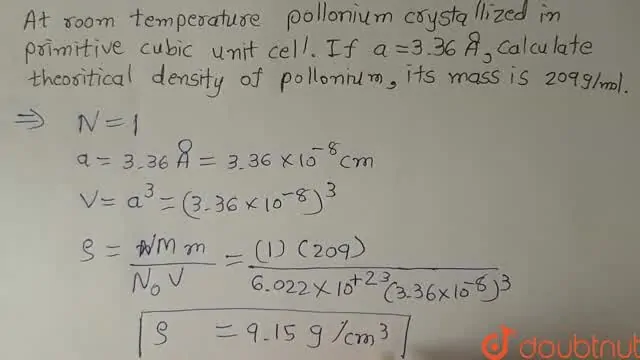 At room temperature pollonium crystallized in
primitive cubic unit cell. If a = 3.36 Å, calculate
theoritical density of pollonium, its mass is 209 g/mol.
⇒ N = 1
a = 3.36 Å = 3.36 × 10⁻⁸ cm
V = a³ = (3.36 × 10⁻⁸)³
ρ = N M m / N₀ V = (1) (209) / 6.022 × 10⁺²³ (3.36 × 10⁻⁸)³
ρ = 9.15 g/cm³
doubtnut